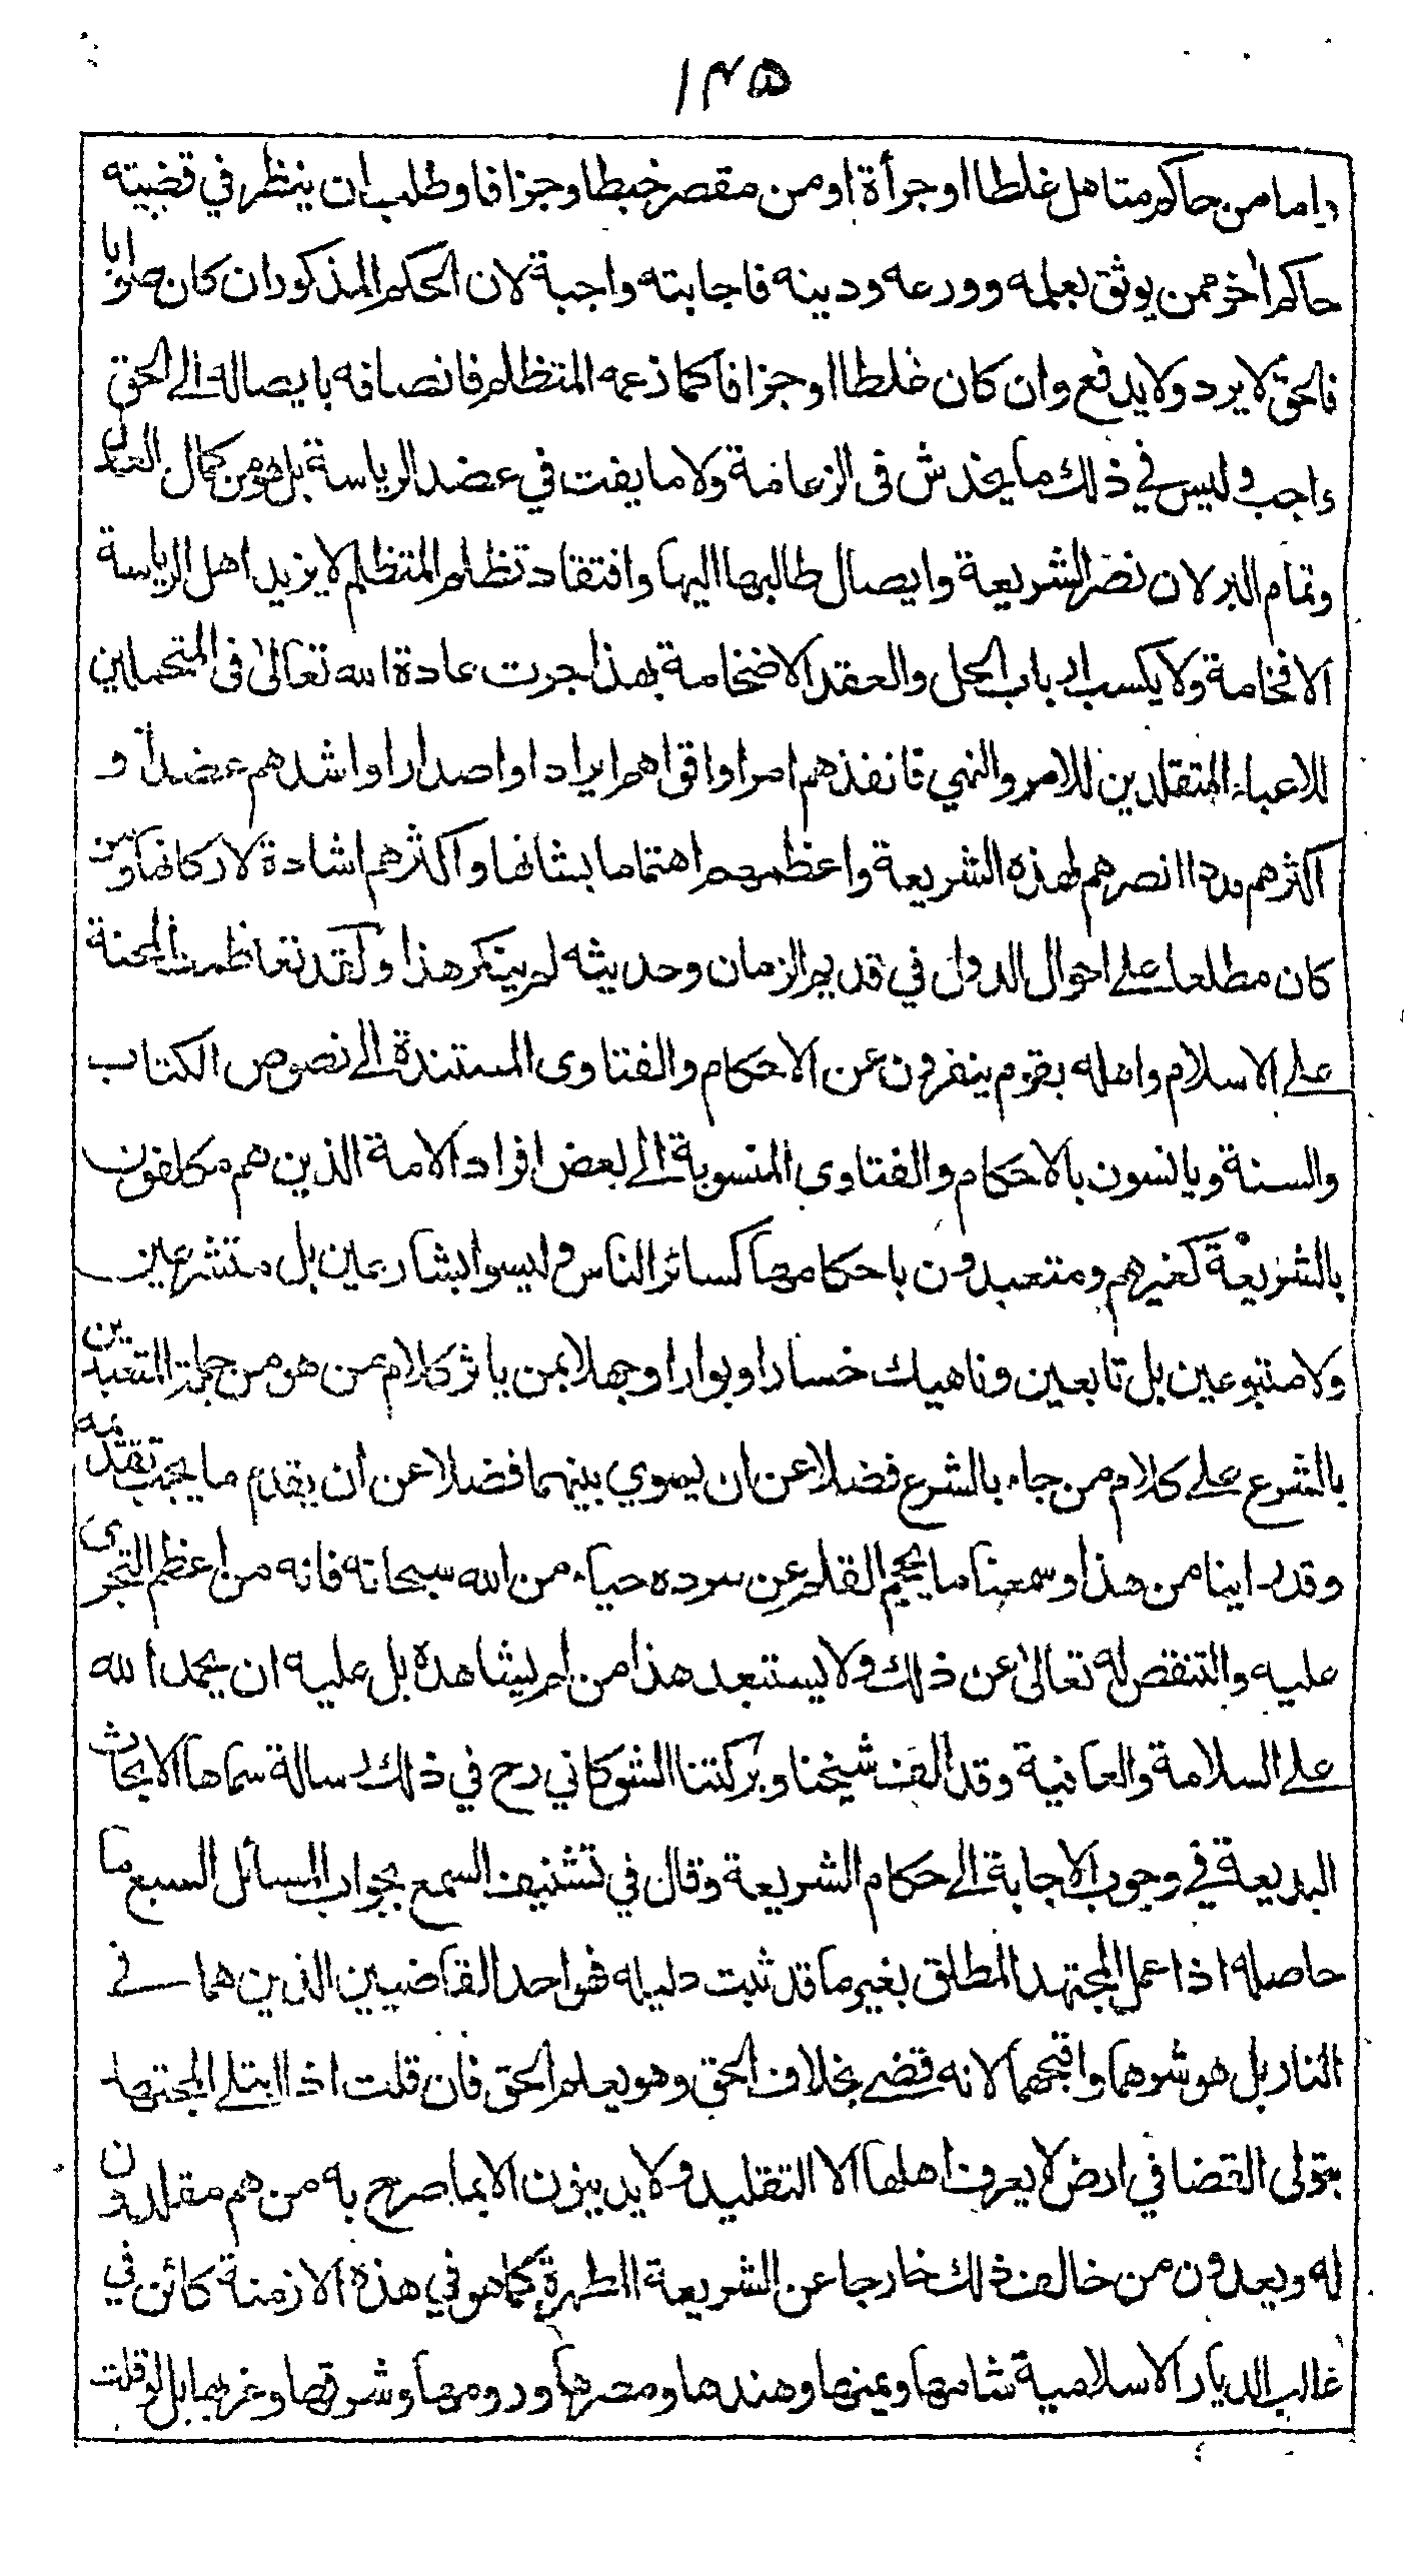 ١٢٥
واما من حاكم متاهل غلطا او جرأة او من مقصر خبطا وجزافا وطلب ان ينظر في قضيته
حاكم اخر ممن يوثق بعلمه وورعه ودينه فاجابته واجبة لان الحكم المذكور ان كان صوابا
فالحق لا يرد ولا يدفع وان كان غلطا او جزافا كما زعمه المتظلم فانصافه بايصاله الى الحق
واجب وليس في ذلك ما يخدش فى الزعامة ولا ما يفت في عضد الرياسة بل هو من كمال العدل
وتمام البر لان نصر الشريعة وايصال طالبها اليها وافتقاد تظلم المتظلم لا يزيد اهل الرياسة
الا فخامة ولا يكسب ارباب الحل والعقد الا ضخامة بهذا جرت عادة الله تعالىٰ فى المتحملين
للاعباء المتقلدين للامر والنهي فانفذهم امرا واقواهم ايرادا واصدارا واشدهم عضدا و
اكثرهم مددا انصرهم لهذه الشريعة واعظمهم اهتماما بشانها واكثرهم اشادة لاركانها ومن
كان مطلعا على احوال الدول في قديم الزمان وحديثه لم ينكر هذا ولقد تعاظمت المحنة
على الاسلام واهله بقوم ينفرون عن الاحكام والفتاوى المستندة الى نصوص الكتاب
والسنة ويانسون بالاحكام والفتاوى المنسوبة الى بعض افراد الامة الذين هم مكلفون
بالشريعة كغيرهم ومتعبدون باحكامها كسائر الناس وليسوا بشارعين بل متشرعين
ولا متبوعين بل تابعين وناهيك خسارا وبوارا وجهلا بمن ياثر كلام من هو من جملة المتعبدين
بالشرع على كلام من جاء بالشرع فضلا عن ان يسوي بينهما فضلا عن ان يقدم ما يجب تقدمه
وقد راينا من هذا وسمعنا ما يحجم القلم عن سرده حياء من الله سبحانه فانه من اعظم التجرى
عليه والتنقص له تعالىٰ عن ذلك ولا يستبعد هذا من لم يشاهده بل عليه ان يحمد الله
على السلامة والعافية وقد الف شيخنا وبركتنا الشوكاني رح في ذلك رسالة سماها الابحاث
البديعة في وجوب الاجابة الى حكام الشريعة وقال في تشنيف السمع بجواب المسائل السبع ما
حاصله اذا عمل المجتهد المطلق بغير ما قد ثبت دليله فهو احد القاضيين الذين هما فى
النار بل هو شرهما واقبحهما لانه قضى بخلاف الحق وهو يعلم الحق فان قلت اذا ابتلى المجتهد
بتولى القضا في ارض لا يعرف اهلها الا التقليد ولا يدينون الا بما صرح به من هم مقلدون
له ويعدون من خالف ذلك خارجا عن الشريعة المطهرة كما هو في هذه الازمنة كائن في
غالب الديار الاسلامية شامها ويمنها وهندها ومصرها ورومها وشرقها وغربها بل لو قلت